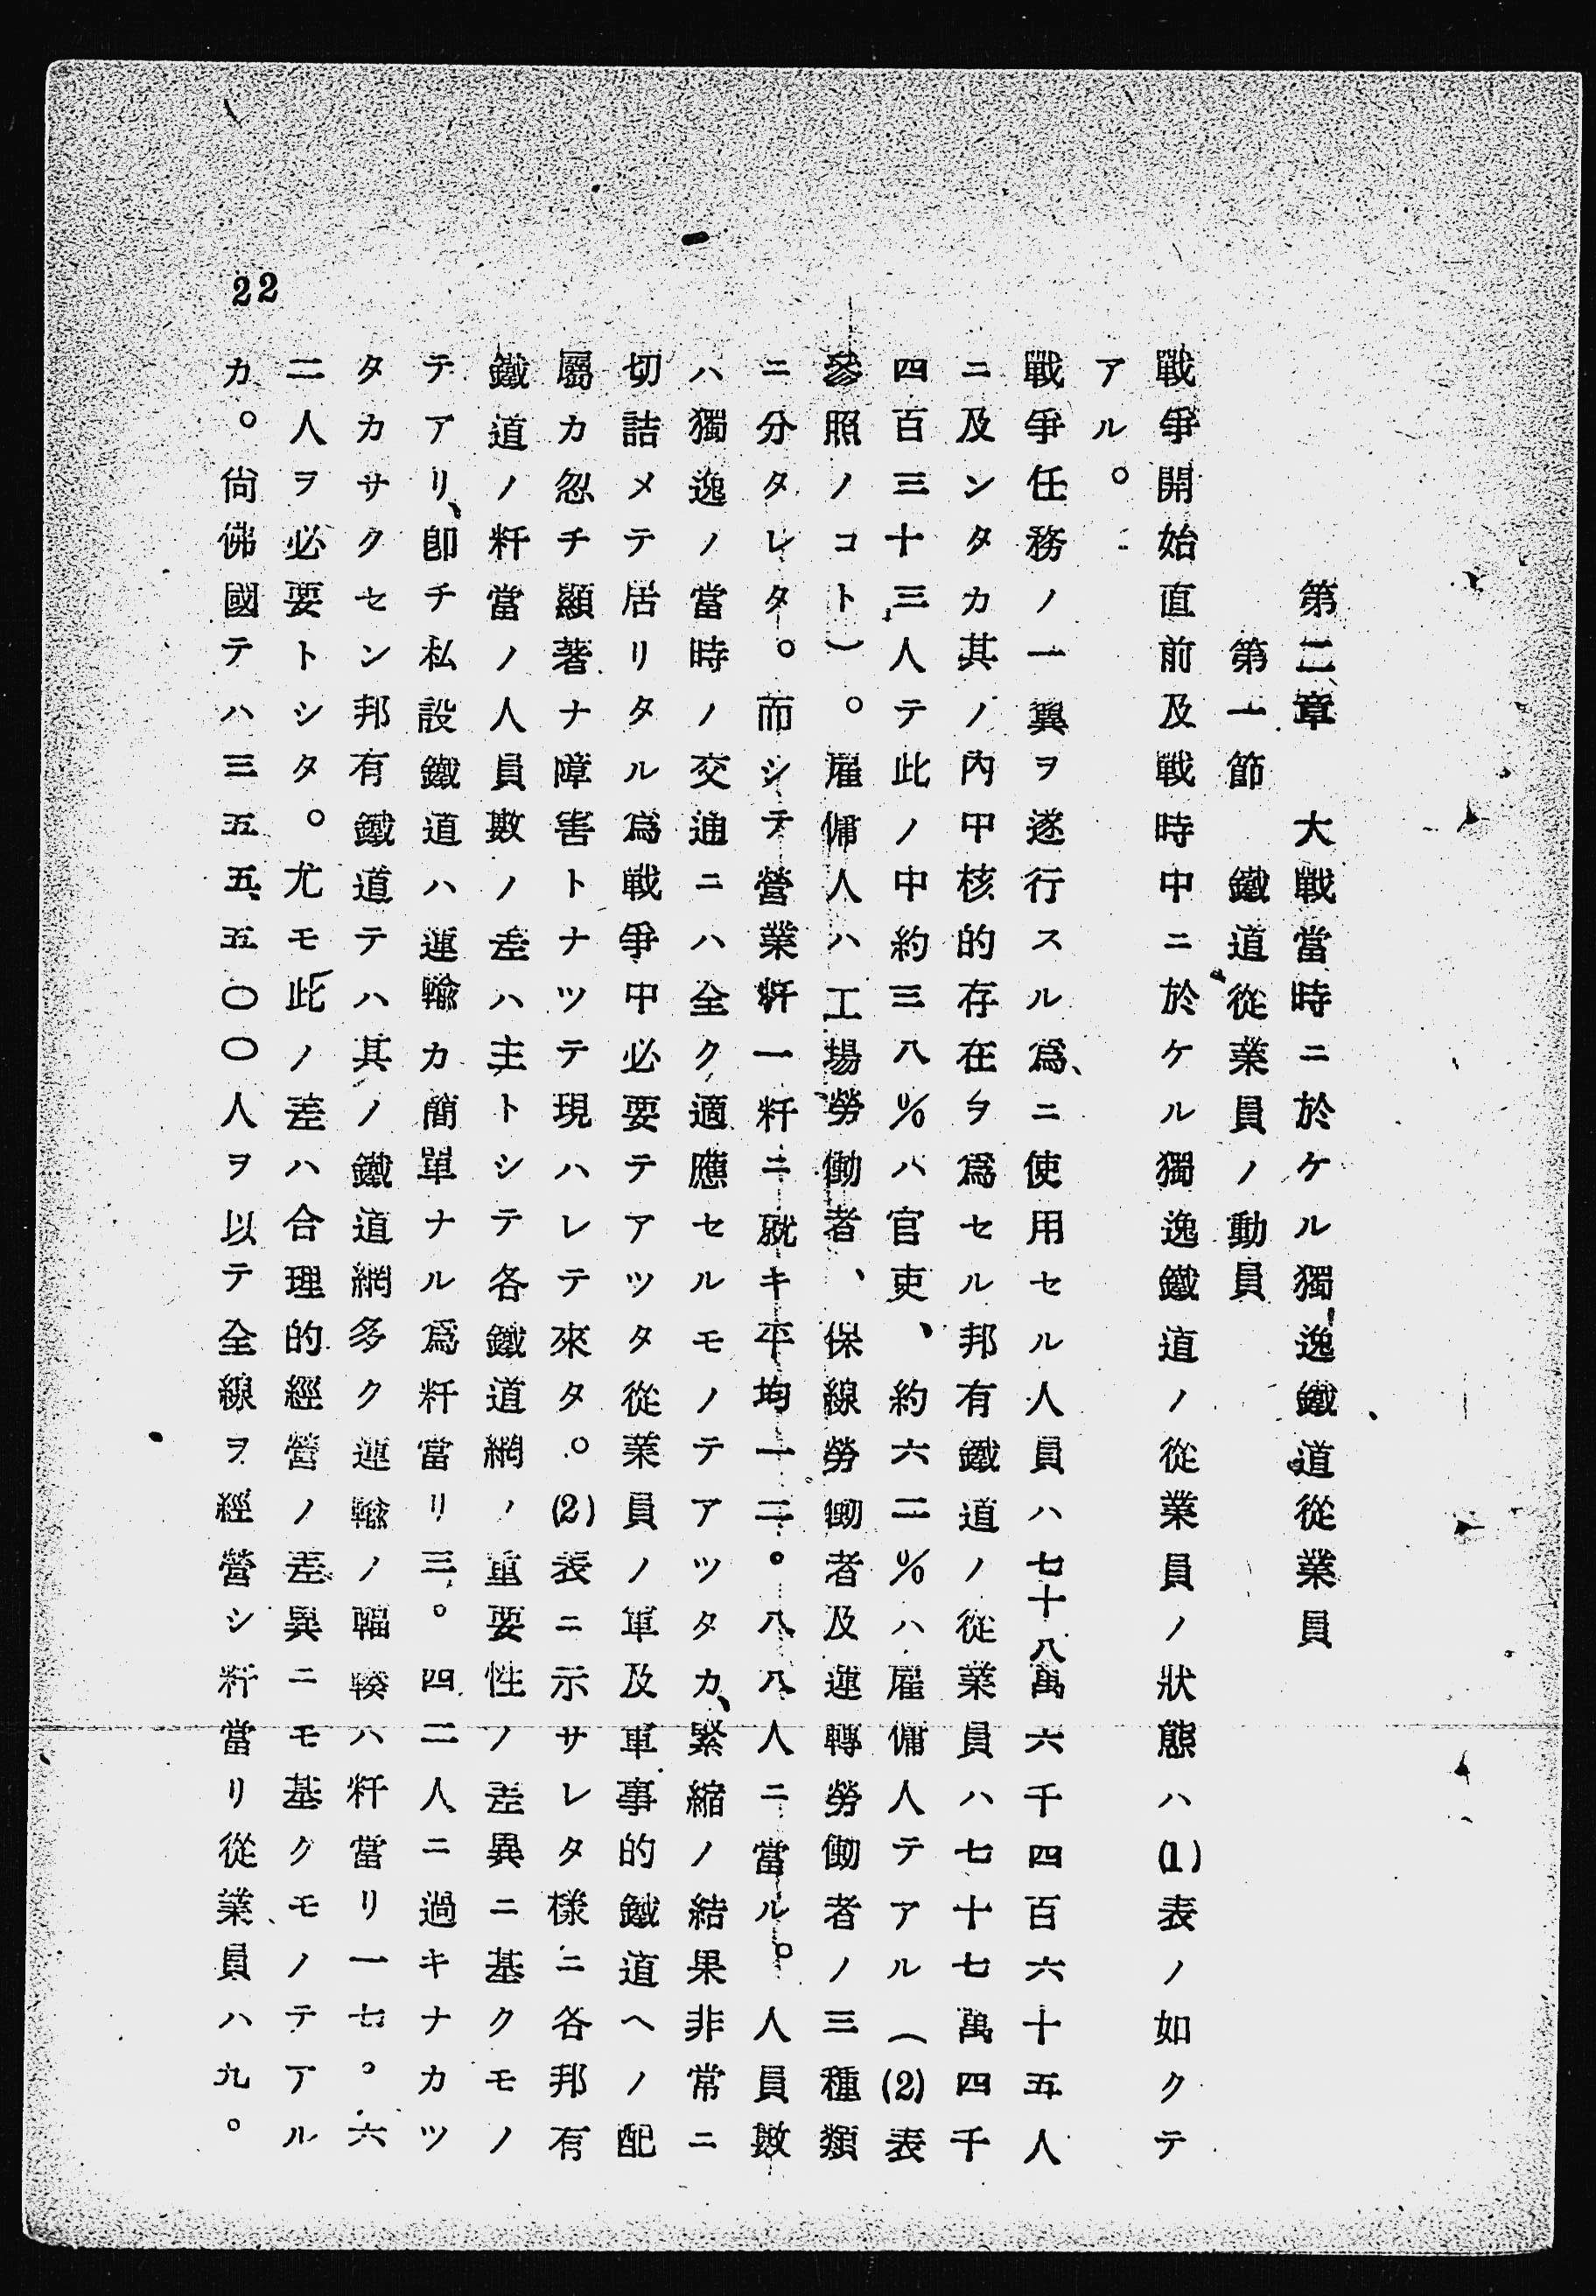 第二章　大戰當時ニ於ケル獨逸鐵道從業員
第一節　鐵道從業員ノ動員
戰爭開始直前及戰時中ニ於ケル獨逸鐵道ノ從業員ノ狀態ハ(1)表ノ如クテ
アル。
戰爭任務ノ一翼ヲ遂行スル爲、ニ使用セル人員ハ七十八萬六千四百六十五人
ニ及ンタカ其ノ內中核的存在ヲ爲セル邦有鐵道ノ從業員ハ七十七萬四千
四百三十三人テ此ノ中約三八%ハ官吏、約六二%ハ雇傭人テアル（(2)表
參照ノコト）。雇傭人ハ工場勞働者、保線勞働者及運轉勞働者ノ三種類
ニ分タレタ。而シテ營業粁一粁ニ就キ平均一二。八八人ニ當ル。人員數
ハ獨逸ノ當時ノ交通ニハ全ク適應セルモノテアツタカ、緊縮ノ結果非常ニ
切詰メテ居リタル爲戰爭中必要テアツタ從業員ノ軍及軍事的鐵道ヘノ配
屬カ忽チ顯著ナ障害トナツテ現ハレテ來タ。(2)表ニ示サレタ樣ニ各邦有
鐵道ノ粁當ノ人員數ノ差ハ主トシテ各鐵道網ノ重要性ノ差異ニ基クモノ
テアリ、卽チ私設鐵道ハ運輸カ簡單ナル爲粁當リ三。四二人ニ過キナカツ
タカサクセン邦有鐵道テハ其ノ鐵道網多ク運輸ノ輻輳ハ粁當リ一七。六
二人ヲ必要トシタ。尤モ此ノ差ハ合理的經營ノ差異ニモ基クモノテアル
カ。尙佛國テハ三五五、五〇〇人ヲ以テ全線ヲ經營シ粁當リ從業員ハ九。
22